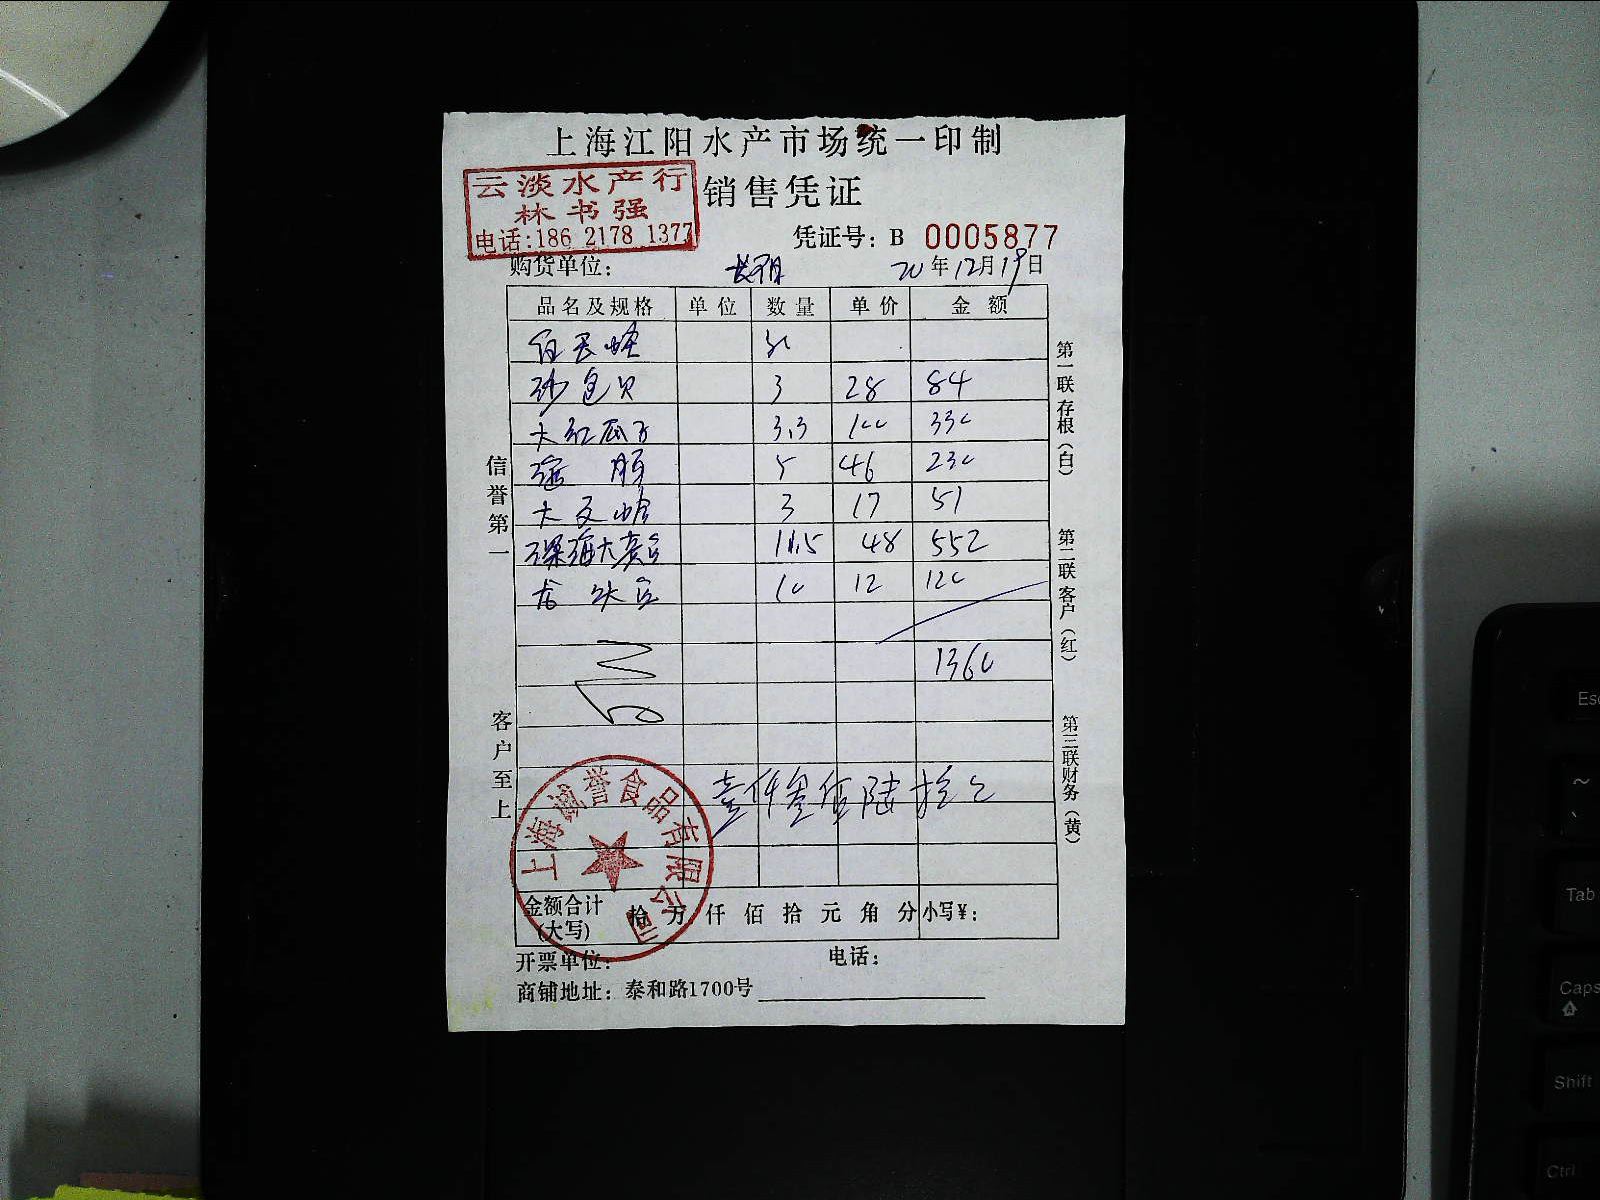 上海江阳水产市场统一印制
云淡水产行
林书强
电话:186 2178 1377
销售凭证
凭证号: B 0005877
购货单位:
20年12月19日
品名及规格 单位 数量 单价 金额
30
沙包贝 3 28 84
大红瓜子 3.3 100 330
5 46 230
大文蛤 3 17 51
深海大 11.5 48 552
10 12 120
1360
壹仟叁佰陆拾元
上海诚誉食品有限公司
金额合计(大写) 拾 万 仟 佰 拾 元 角 分 小写¥:
开票单位: 电话:
商铺地址: 泰和路1700号
信誉第一
客户至上
第一联 存根(白)
第二联 客户(红)
第三联 财务(黄)
Esc
~
Tab
Caps
Shift
Ctrl